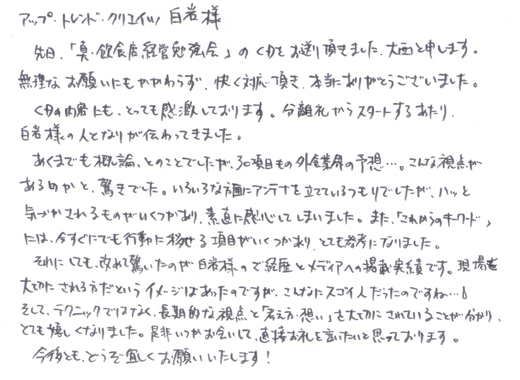 アップ・トレンド・クリエイツ 白岩様
先日、「真・飲食店経営勉強会」のCDをお送り頂きました、大西と申します。
無理なお願いにもかかわらず、快く対応頂き、本当にありがとうございました。
CDの内容にも、とっても感激しております。分離礼からスタートするあたり、
白岩様の人となりが伝わってきました。
あくまでも概論、とのことでしたが、30項目もの外食業界の予想…。こんな視点が
あるのかと、驚きでした。いろいろな方面にアンテナを立てているつもりでしたが、ハッと
気づかされるものがいくつかあり、素直に感心してしまいました。また、「これからのキーワード」
には、今すぐにでも行動に移せる項目がいくつかあり、とても参考になりました。
それにしても、改めて驚いたのが白岩様のご経歴とメディアへの掲載実績です。現場を
大切にされる方だというイメージはあったのですが、こんなにスゴイ人だったのですね…!
そして、テクニックではなく、長期的な視点と「考え方・想い」を大切にされていることが分かり、
とても嬉しくなりました。是非いつかお会いして、直接お礼を言いたいと思っております。
今後とも、どうぞ宜しくお願いいたします!